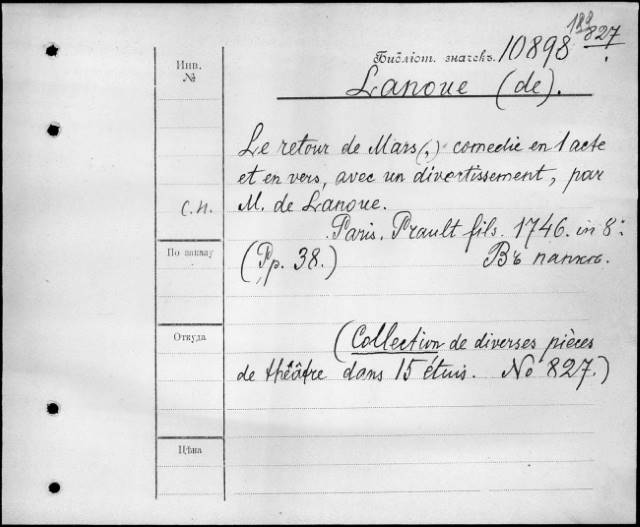 188
827
Инв.
№
Библіот. значекъ. 10898
Lanoue (de).
Le retour de Mars(,) comedie en 1 acte
et en vers, avec un divertissement, par
С.П. M. de Lanoue.
Paris. Prault fils. 1746. in 8:
По шкапу
(Pp. 38.) Въ папкѣ.
Откуда
(Collection de diverses pièces
de théâtre dans 15 étuis. No 827.)
Цѣна